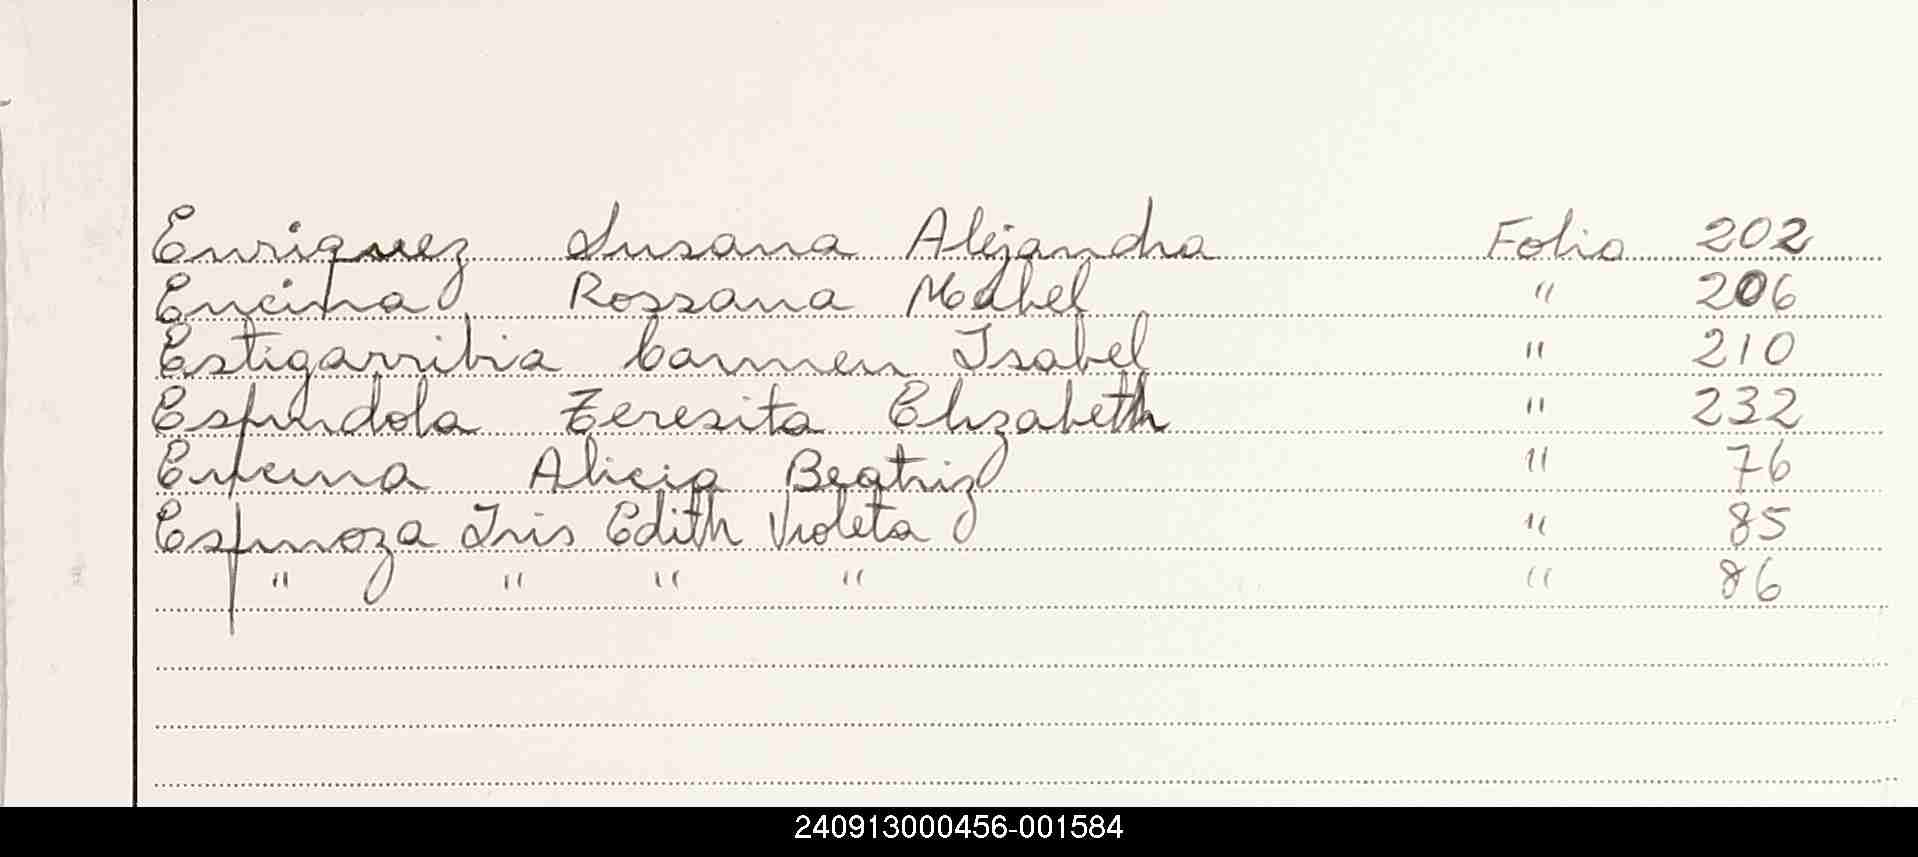 Enriquez Susana Alejandra Folio 202
Encina Rossana Mabel " 206
Estigarribia Carmen Isabel " 210
Espindola Teresita Elizabeth " 232
Encina Alicia Beatriz " 76
Espinoza Iris Edith Violeta " 85
" " " " " 86
240913000456-001584